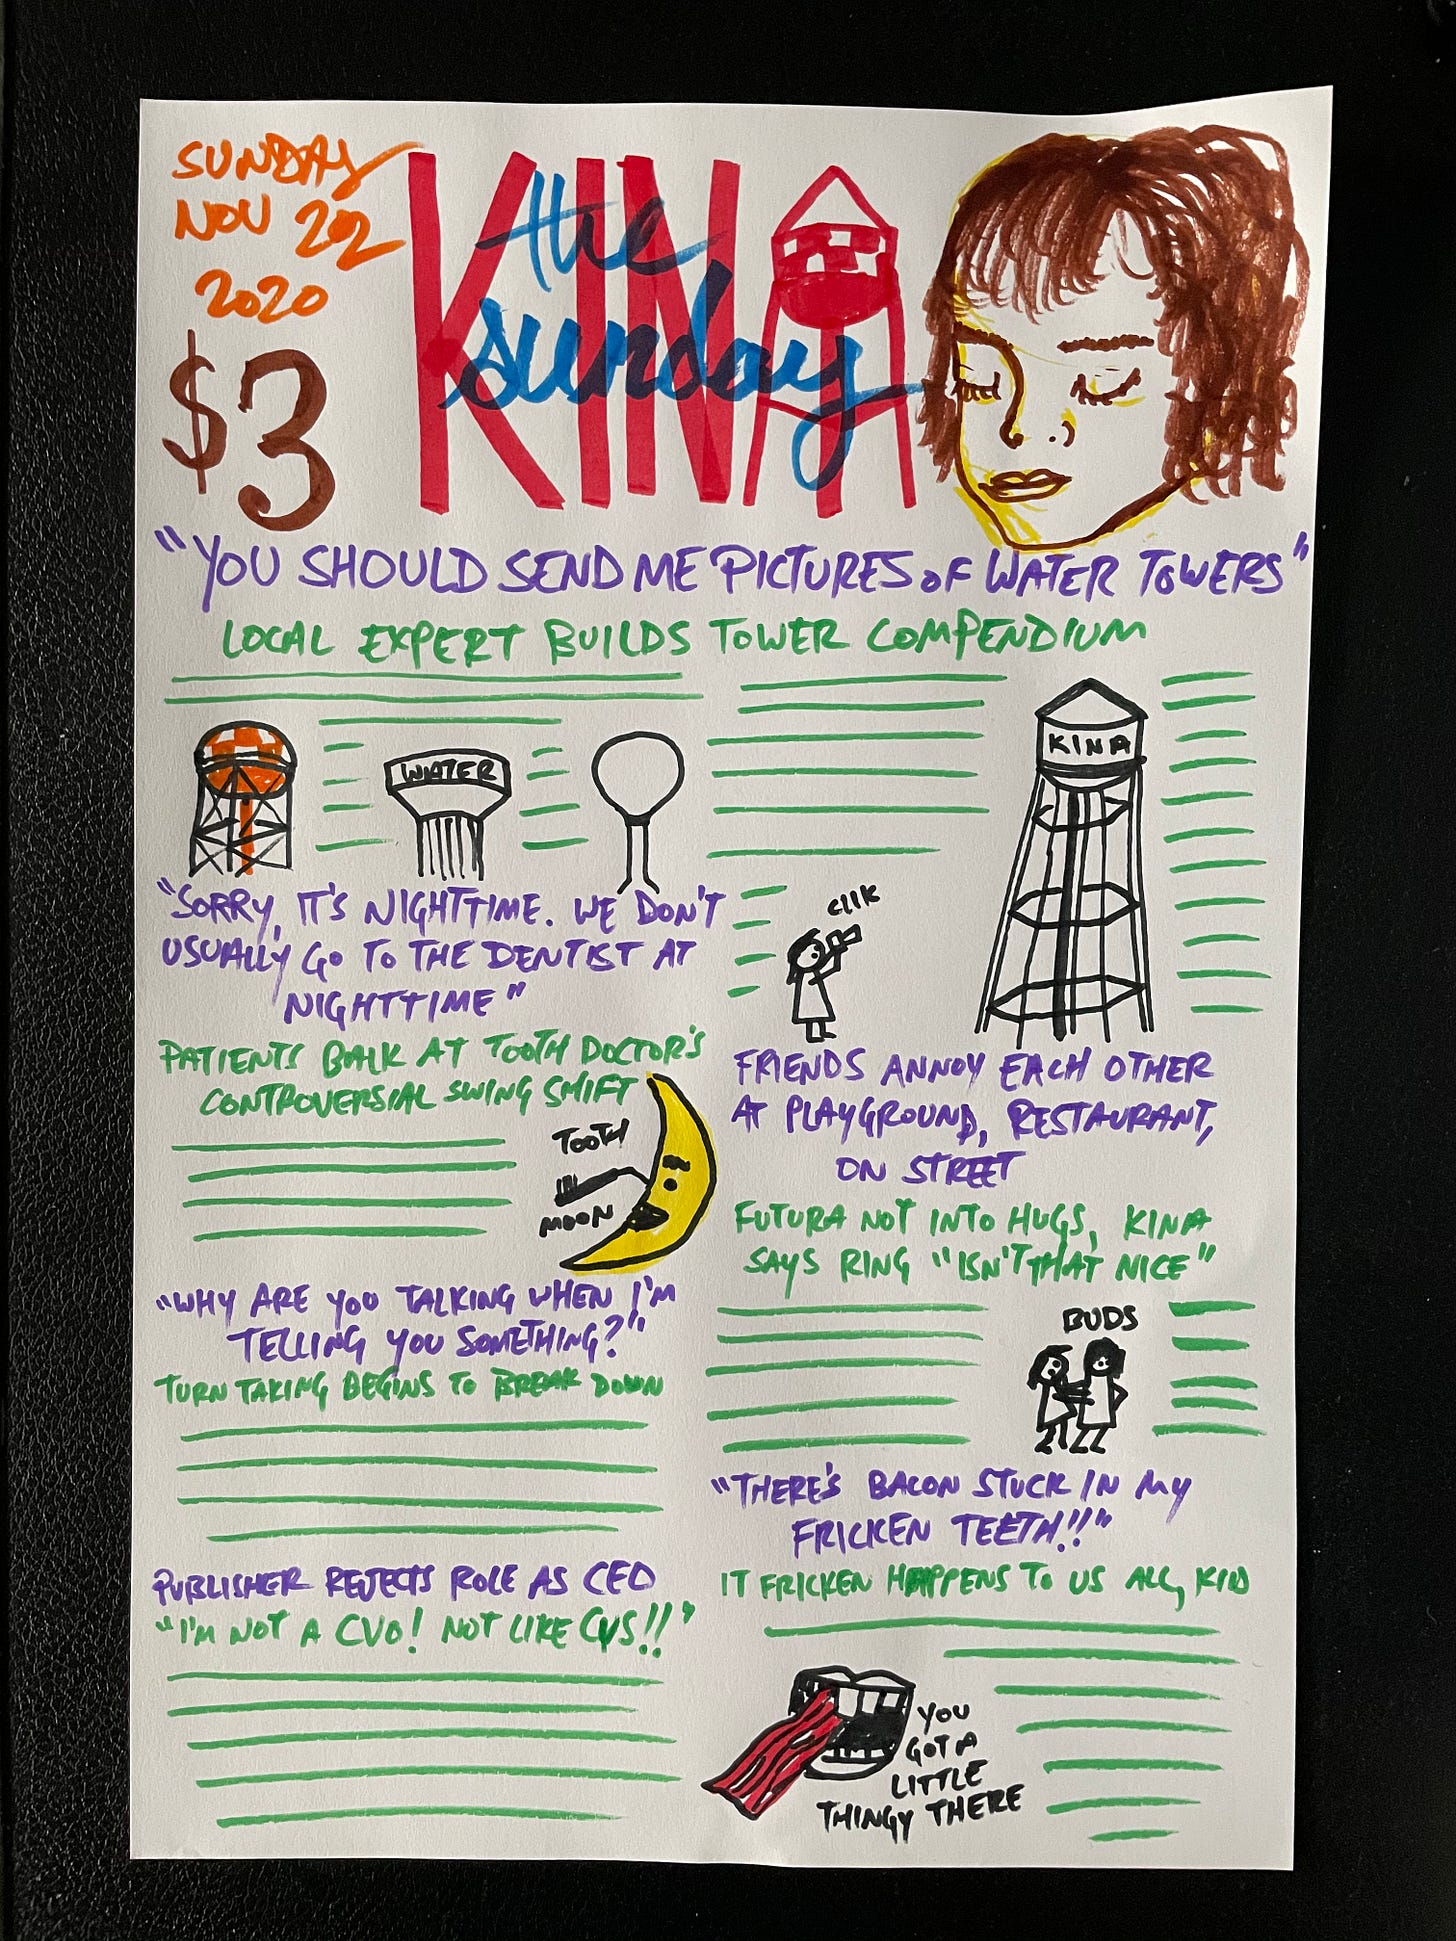 SUNDAY
NOV 22
2020
$3
KINA
the
sunday
"YOU SHOULD SEND ME PICTURES OF WATER TOWERS"
LOCAL EXPERT BUILDS TOWER COMPENDIUM
WATER
KINA
CLIK
"SORRY, IT'S NIGHTTIME. WE DON'T
USUALLY GO TO THE DENTIST AT
NIGHTTIME"
PATIENTS BALK AT TOOTH DOCTOR'S
CONTROVERSIAL SWING SHIFT
TOOTH
MOON
"WHY ARE YOU TALKING WHEN I'M
TELLING YOU SOMETHING?"
TURN TAKING BEGINS TO BREAK DOWN
PUBLISHER REJECTS ROLE AS CEO
"I'M NOT A CVO! NOT LIKE CVS!!"
FRIENDS ANNOY EACH OTHER
AT PLAYGROUND, RESTAURANT,
ON STREET
FUTURA NOT INTO HUGS, KINA
SAYS RING "ISN'T THAT NICE"
BUDS
"THERE'S BACON STUCK IN MY
FRICKEN TEETH!!"
IT FRICKEN HAPPENS TO US ALL, KID
YOU
GOT A
LITTLE
THINGY THERE